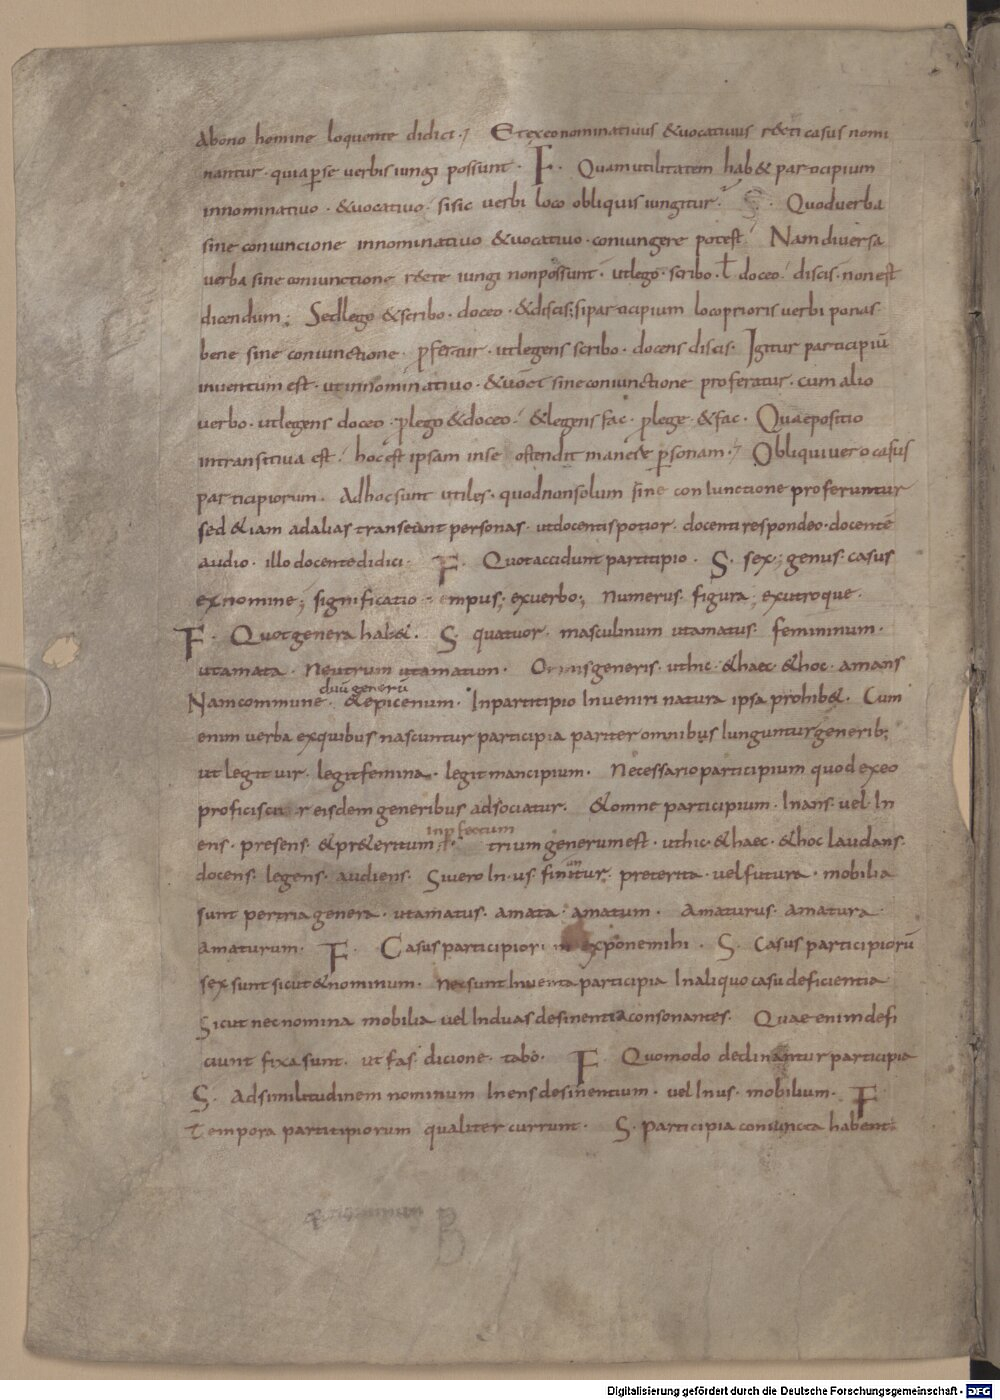 abono homine loquente didici. Et ex eo nominativus & vocativus recti casus nomi
nantur. quia ꝑse verbis iungi possunt. F. Quam utilitatem hab& participium
innominativo. & vocativo. si sic verbi loco obliquis iungitur. S. Quod verba
sine coniuncione innominativo & vocativo. coniungere potest. Nam diversa
verba sine coniunctione recte iungi non possunt. ut lego. scribo. ł doceo. discis. non est
dicendum; Sed lego & scribo. doceo. & discis; si participium loco prioris verbi ponas
bene sine coniunctione. ꝓfertur. ut legens scribo. docens discis. Igitur participiū
inventum est. ut innominativo. & vocł sine coniunctione proferatur. cum alio
verbo. ut legens doceo. ꝓ lego & doceo. & legens fac. ꝓ lege. & fac. Quae positio
intransitiva est. hoc est ipsam in se ostendit manere ꝑsonam. Obliqui vero casus
participiorum. Ad hoc sunt utiles. quod non solum sine coniunctione proferuntur
sed &iam ad alias transeant personas. ut docentis potior. docenti respondeo. docentē
audio. illo docente didici. F. Quot accidunt partitipio. S. sex; genus. casus
ex nomine; significatio. empus; ex verbo; Numerus. figura; ex utroque.
F. Quot genera hab&. S. quatuor. masculinum ut amatus. femininum.
ut amata. Neutrum ut amatum. Omnis generis. ut hic. & haec. & hoc. amans
duū generū
Nam commune. & epicenum. In partitipio Inveniri natura ipsa prohib&. Cum
enim verba ex quibus nascuntur participia pariter omnibus Iunguntur generib;
ut legit vir. legit femina. legit mancipium. Necessario participium quod ex eo
proficiscitur eisdem generibus adsociatur. & omne participium. In ans. vel. In
inꝑfectum
ens. presens. & pr&eritum. trium generum est. ut hic. & haec. & hoc laudans.
docens. legens. audiens. Si vero In. us. finitur. preterita. vel futura. mobilia
sunt per tria genera. ut amatus. amata. amatum. Amaturus. amatura
amaturum. F. Casus participior expone mihi. S. Casus participiorū
sex sunt sicut & nominum. Nec sunt Inventa participia In aliquo casu deficientia
Sicut nec nomina mobilia vel In duas desinentia consonantes. Quae enim defi
ciunt fixa sunt. ut fas. dicione. tabo. F. Quomodo declinantur participia
S. Ad similitudinem nominum In ens desinentium. vel In us. mobilium. F
Tempora partitipiorum qualiter currunt. S. Participia coniuncta habent.
B
Digitalisierung gefördert durch die Deutsche Forschungsgemeinschaft - DFG